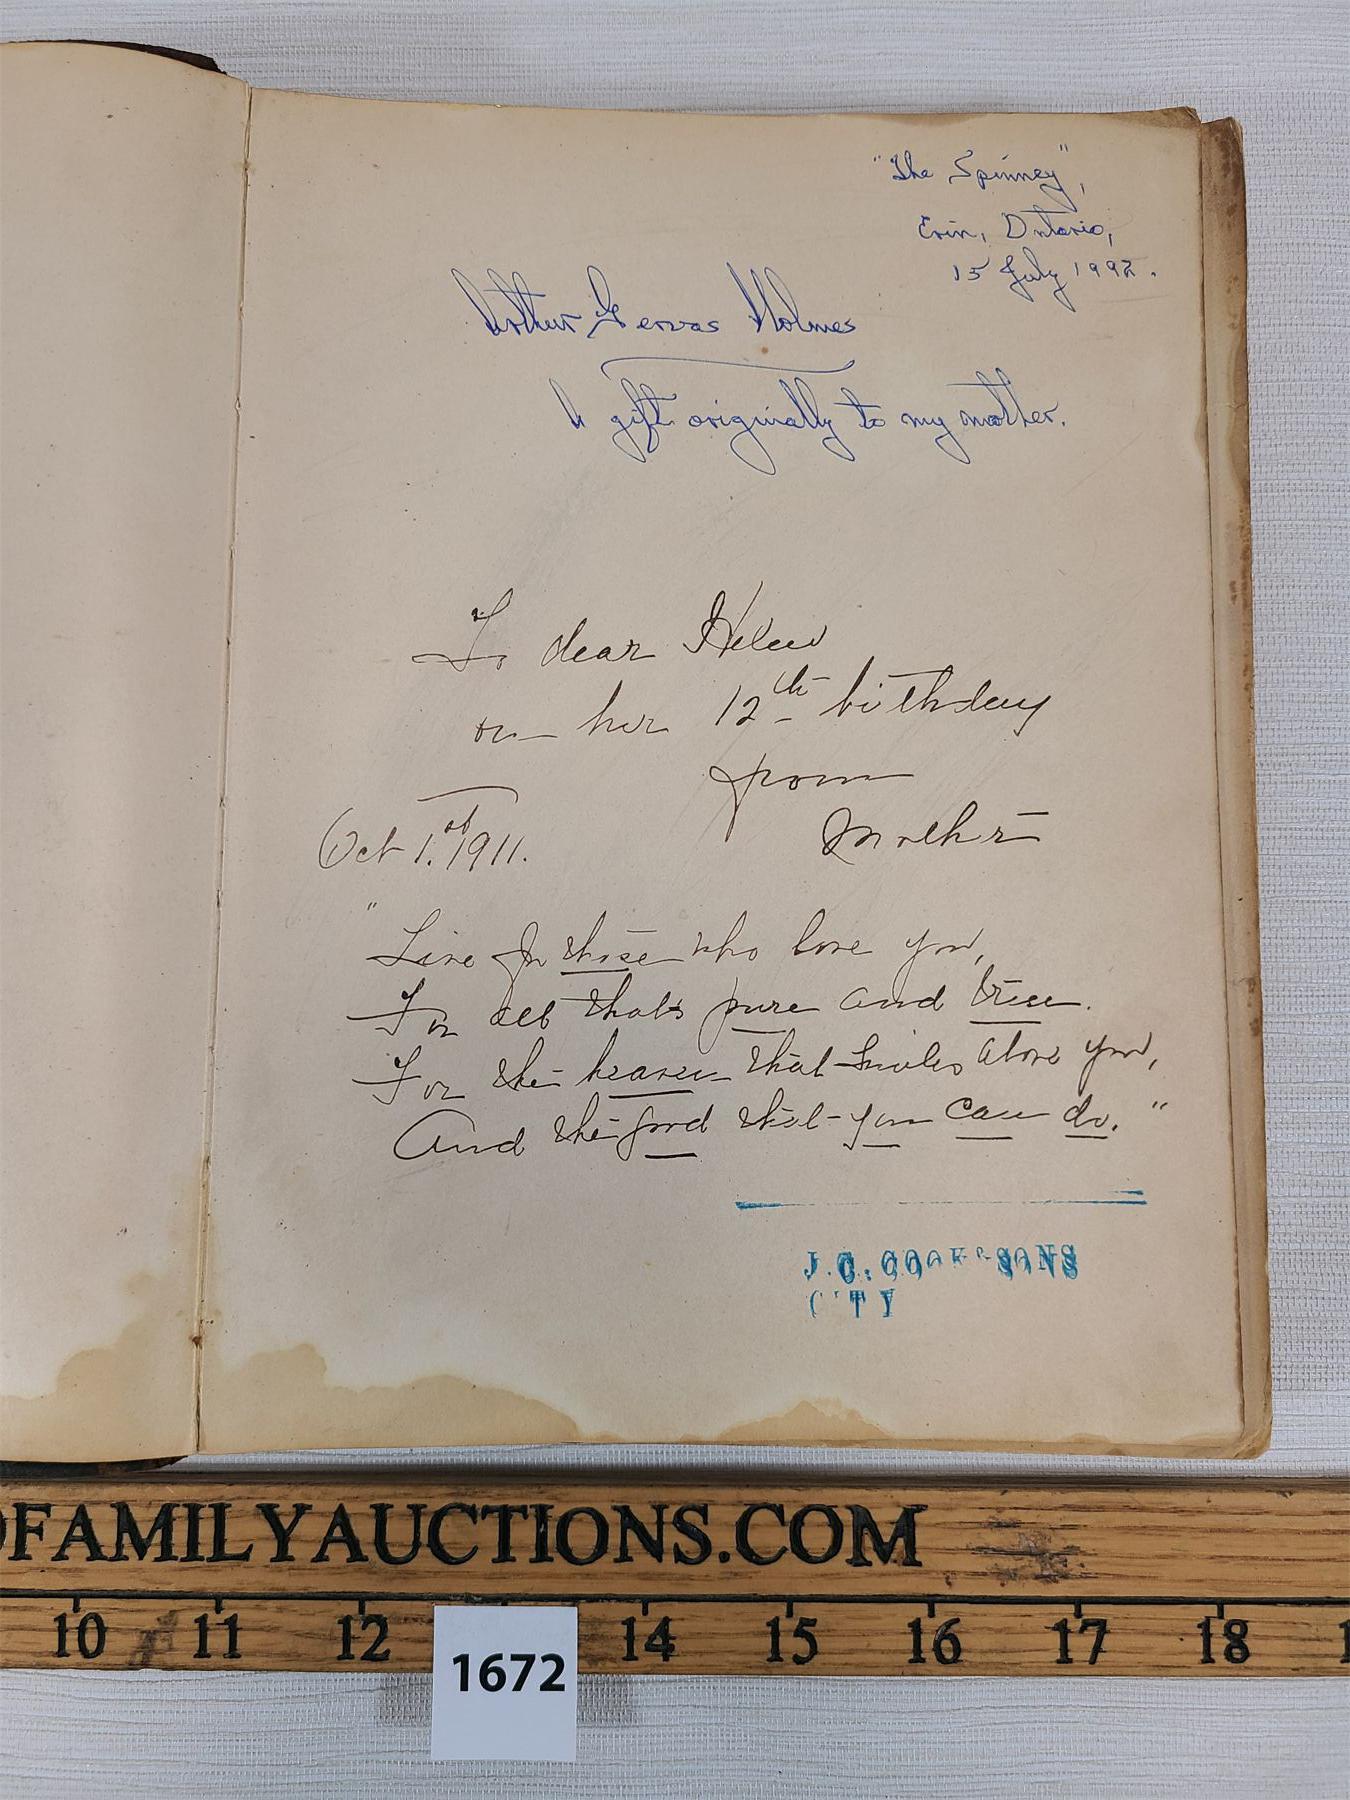 "The Spinney",
Erin, Ontario,
15 July 1992.
Arthur Gervas Holmes
A gift originally to my mother.
To dear Helen
on her 12th birthday
from
Mother
Oct 1.st 1911.
"Live for those who love you,
For all that's pure and true.
For the heaven that smiles above you,
And the good that you can do."
J. C. COOK & SONS
CITY
FAMILYAUCTIONS.COM
10 11 12 14 15 16 17 18
1672